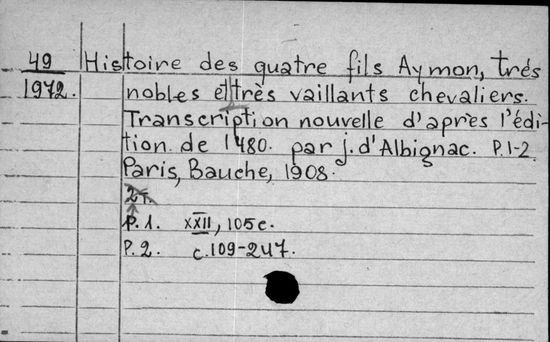 49 Histoire des quatre fils Aymon, trés
1972. nobles et très vaillants chevaliers.
Transcription nouvelle d'après l'édi-
tion de 1480. par j. d'Albignac. P.1-2.
Paris, Bauche, 1908.
2т.
P.1. XXII, 105c.
P.2. c.109-247.